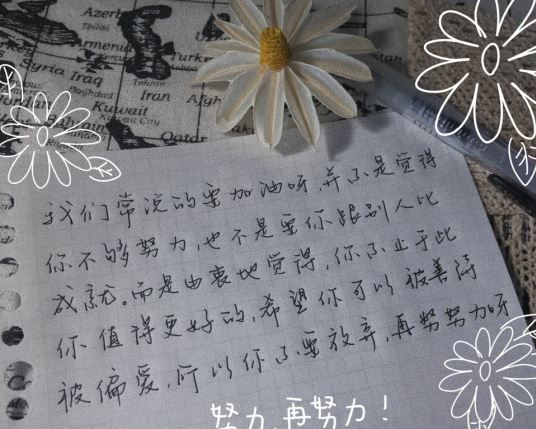 Azerb
Armenia
Turk
Syria
Iraq
Tehran
Baghdad
Iran
Afgh
Jordan
Kuwait
Kuwait City
Qatar
我们常说的要加油呀,并不是觉得
你不够努力,也不是要你跟别人比
成就。而是由衷地觉得,你不止于此
你值得更好的,希望你可以被善待
被偏爱,所以你不要放弃,再努努力呀
努力,再努力!